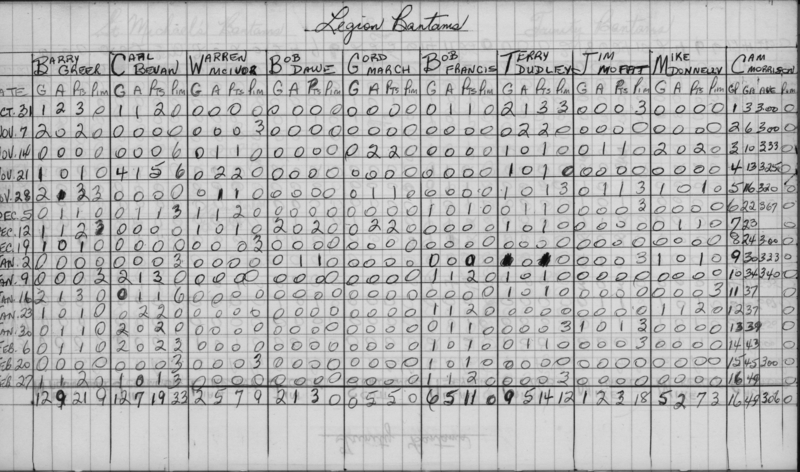 Legion Bantams
BARRY GREER CARL BEVAN WARREN MCIVOR BOB DAWE GORD MARCH BOB FRANCIS TERRY DUDLEY JIM MOFFAT MIKE DONNELLY CAM MORRISON
ATE G A Pts Pim G A Pts Pim G A Pts Pim G A Pts Pim G A Pts Pim G A Pts Pim G A Pts Pim G A Pts Pim G A Pts Pim GP GA AVE Pim
CT. 31 1 2 3 0 1 1 2 0 0 0 0 0 0 0 0 0 0 0 0 0 0 1 1 0 2 1 3 3 0 0 0 3 0 0 0 0 1 3 300 0
NOV. 7 2 0 2 0 0 0 0 0 0 0 0 3 0 0 0 0 0 0 0 0 0 0 0 0 0 2 2 0 0 0 0 0 0 0 0 0 2 6 300 0
NOV. 14 0 0 0 0 0 0 0 6 0 1 1 0 0 0 0 0 0 2 2 0 0 0 0 0 1 0 1 0 0 1 1 0 2 0 2 0 3 10 333 0
NOV. 21 1 0 1 0 4 1 5 6 0 2 2 0 0 0 0 0 0 0 0 0 0 0 0 0 1 0 1 0 0 0 0 0 0 0 0 0 4 13 325 0
NOV. 28 2 2 3 0 0 0 0 0 1 1 0 0 0 0 0 0 1 1 0 0 0 0 0 1 0 1 3 0 1 1 3 1 0 1 0 5 16 320 0
DEC. 5 0 1 1 0 0 1 1 3 1 1 2 0 0 0 0 0 0 0 0 0 1 0 1 0 0 1 1 0 0 0 0 3 0 0 0 0 6 22 367 0
DEC. 12 1 1 2 3 0 0 0 0 1 0 1 0 2 0 2 0 0 2 2 0 0 0 0 0 1 0 1 0 0 0 0 0 0 1 1 0 7 23 0
DEC. 19 1 0 1 0 0 0 0 0 0 0 0 3 0 0 0 0 0 0 0 0 0 0 0 0 0 0 0 0 0 0 0 0 0 0 0 0 8 24 300 0
JAN. 2 0 0 0 0 0 0 0 3 0 0 0 0 0 1 1 0 0 0 0 0 0 0 0 0 0 0 0 0 0 3 1 0 1 0 9 30 323 0
JAN. 9 0 0 0 3 2 1 3 0 0 0 0 0 0 0 0 0 0 0 0 0 1 1 2 0 1 0 1 0 0 0 0 0 0 0 0 0 10 34 340 0
JAN. 16 2 1 3 0 0 1 1 6 0 0 0 0 0 0 0 0 0 0 0 0 0 0 0 0 1 0 1 0 0 0 0 0 0 0 0 3 11 37 0
JAN. 23 1 0 1 0 0 2 2 0 0 0 0 0 0 0 0 0 0 0 0 0 1 1 2 0 0 0 0 0 0 0 0 0 1 1 2 0 12 37 0
JAN. 30 0 1 1 0 2 0 2 0 0 0 0 0 0 0 0 0 0 0 0 0 0 1 1 0 0 0 0 3 1 0 1 3 0 0 0 0 13 39 0
FEB. 6 0 1 1 0 2 0 2 3 0 0 0 0 0 0 0 0 0 0 0 0 1 0 1 0 0 1 1 0 0 0 0 3 0 0 0 0 14 43 0
FEB 20 0 0 0 0 0 0 0 3 0 0 0 3 0 0 0 0 0 0 0 0 1 0 1 0 0 0 0 0 0 0 0 0 0 0 0 0 15 45 300 0
FEB 27 1 1 2 0 1 0 1 3 0 0 0 0 0 0 0 0 0 0 0 0 1 1 2 0 0 0 0 3 0 0 0 0 0 0 0 0 16 49 0
12 9 21 9 12 7 19 33 2 5 7 9 2 1 3 0 0 5 5 0 6 5 11 0 9 5 14 12 1 2 3 18 5 2 7 3 16 49 306 0